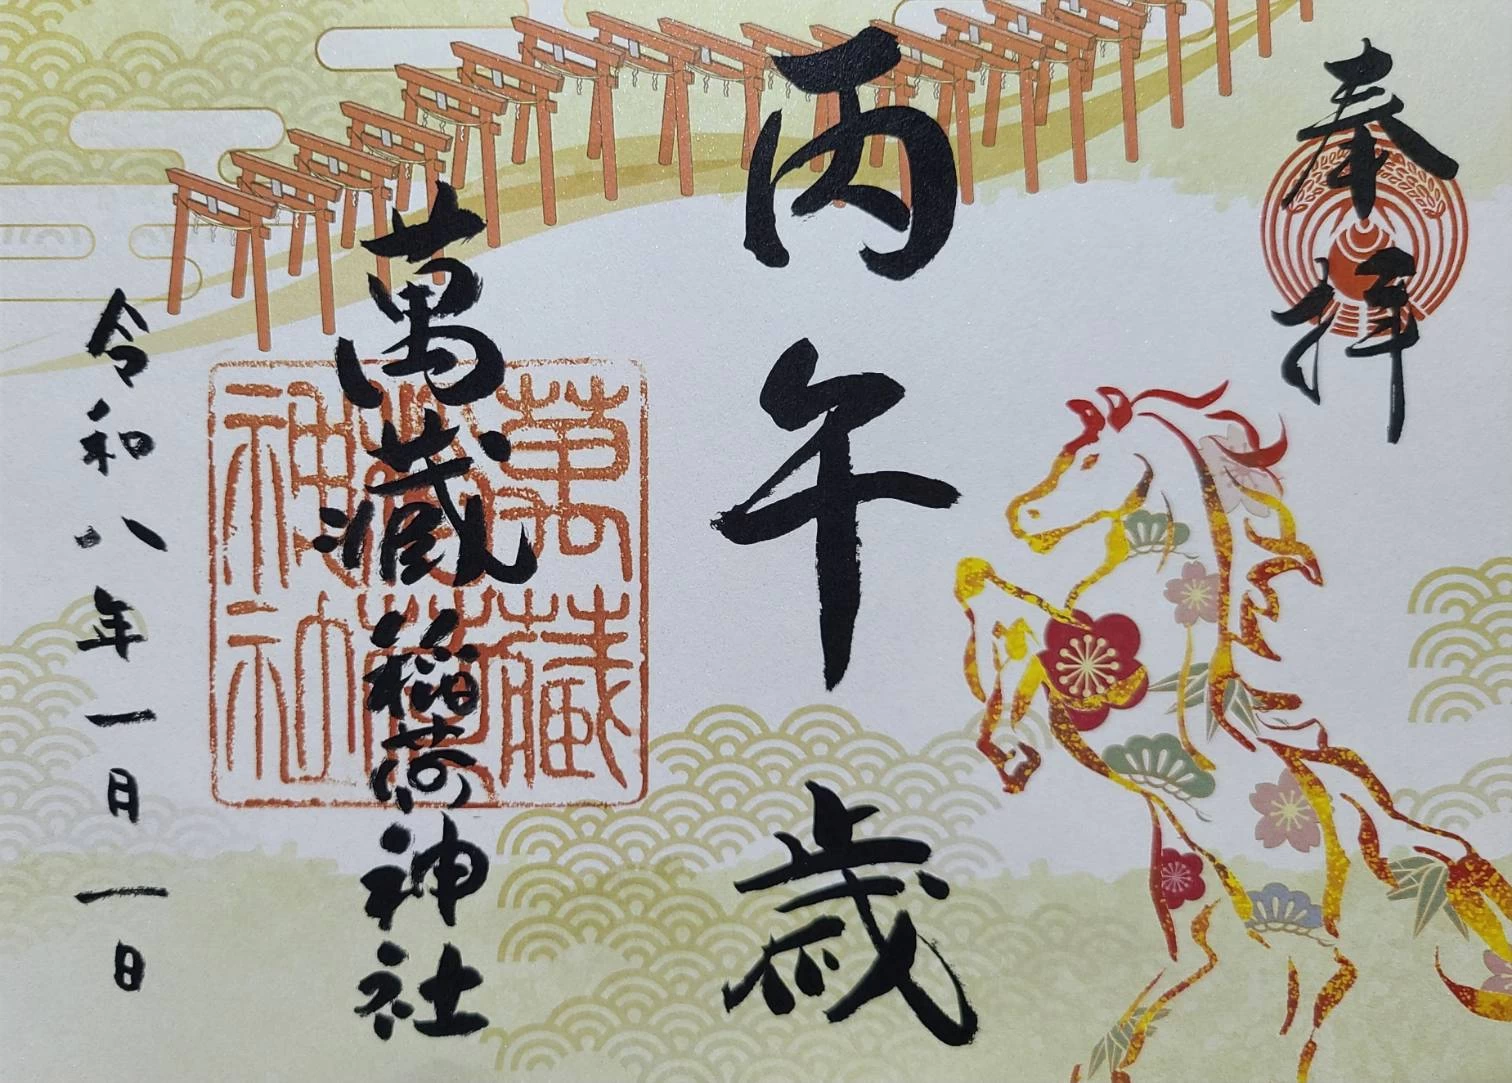 奉拝
丙午歳
萬蔵稲荷神社
萬藏
稲荷
神社
令和八年一月一日